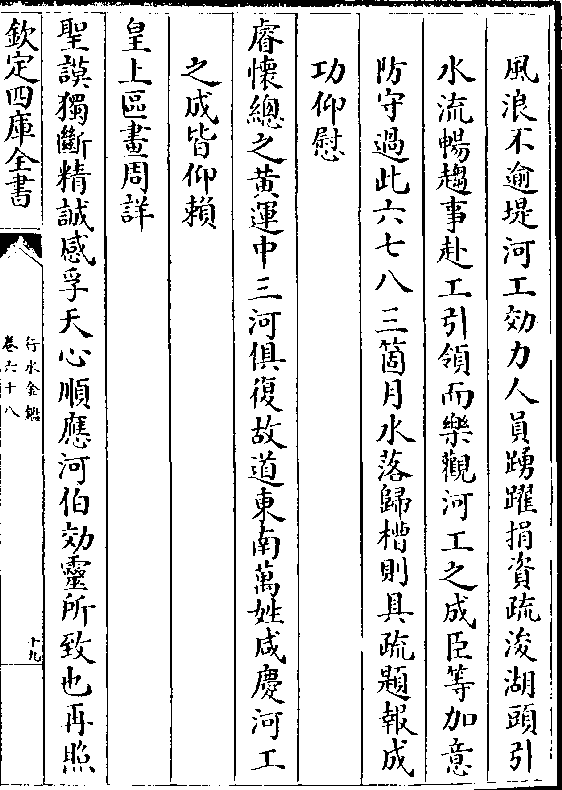 風浪不逾堤河工効力人員踴躍捐資疏浚湖頭引
水流暢趨事赴工引領而樂觀河工之成臣等加意
防守過此六七八三箇月水落歸槽則具疏題報成
功仰慰
睿懷總之黄運中三河俱復故道東南萬姓咸慶河工
之成皆仰賴
皇上區畫周詳
聖謨獨斷精誠感孚天心順應河伯効靈所致也再照
欽定四庫全書
行水金鑑
卷六十八
十九